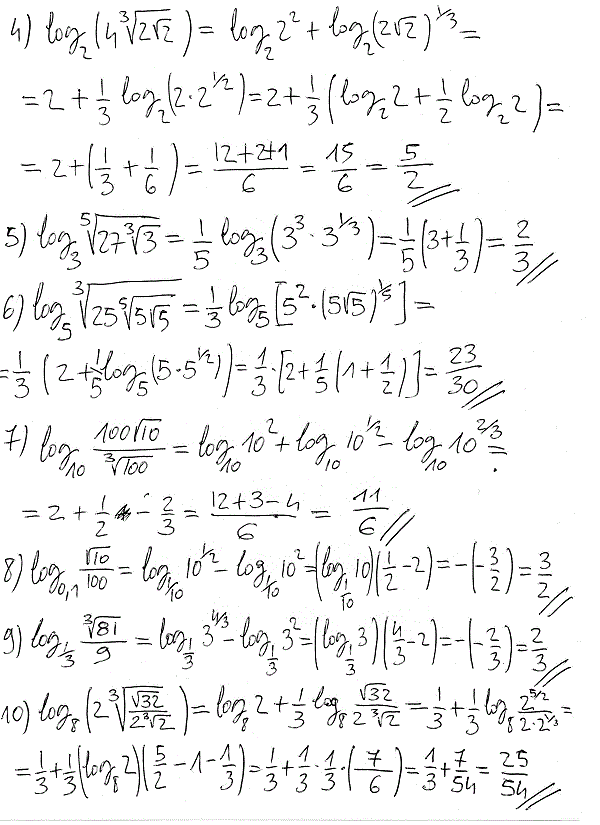 4) log₂(4∛(2√2)) = log₂2² + log₂(2√2)^(1/3) =
= 2 + 1/3 log₂(2·2^(1/2)) = 2 + 1/3 (log₂2 + 1/2 log₂2) =
= 2 + (1/3 + 1/6) = (12+2+1)/6 = 15/6 = 5/2 //
5) log₃ ⁵√(27∛3) = 1/5 log₃(3³·3^(1/3)) = 1/5 (3 + 1/3) = 2/3 //
6) log₅ ∛(25 ⁵√(5√5)) = 1/3 log₅[5²·(5√5)^(1/5)] =
= 1/3 (2 + 1/5 log₅(5·5^(1/2))) = 1/3·[2 + 1/5 (1 + 1/2)] = 23/30 //
7) log₁₀ (100√10)/(∛100) = log₁₀10² + log₁₀10^(1/2) − log₁₀10^(2/3) =
= 2 + 1/2 − 2/3 = (12+3−4)/6 = 11/6 //
8) log₀,₁ (√10)/100 = log_(1/10) 10^(1/2) − log_(1/10) 10² = (log_(1/10) 10)(1/2 − 2) = −(−3/2) = 3/2 //
9) log_(1/3) (∛81)/9 = log_(1/3) 3^(4/3) − log_(1/3) 3² = (log_(1/3) 3)(4/3 − 2) = −(−2/3) = 2/3 //
10) log₈(2∛((√32)/(2∛2))) = log₈2 + 1/3 log₈ (√32)/(2∛2) = 1/3 + 1/3 log₈ (2^(5/2))/(2·2^(1/3)) =
= 1/3 + 1/3 (log₈2)(5/2 − 1 − 1/3) = 1/3 + 1/3·1/3·(7/6) = 1/3 + 7/54 = 25/54 //